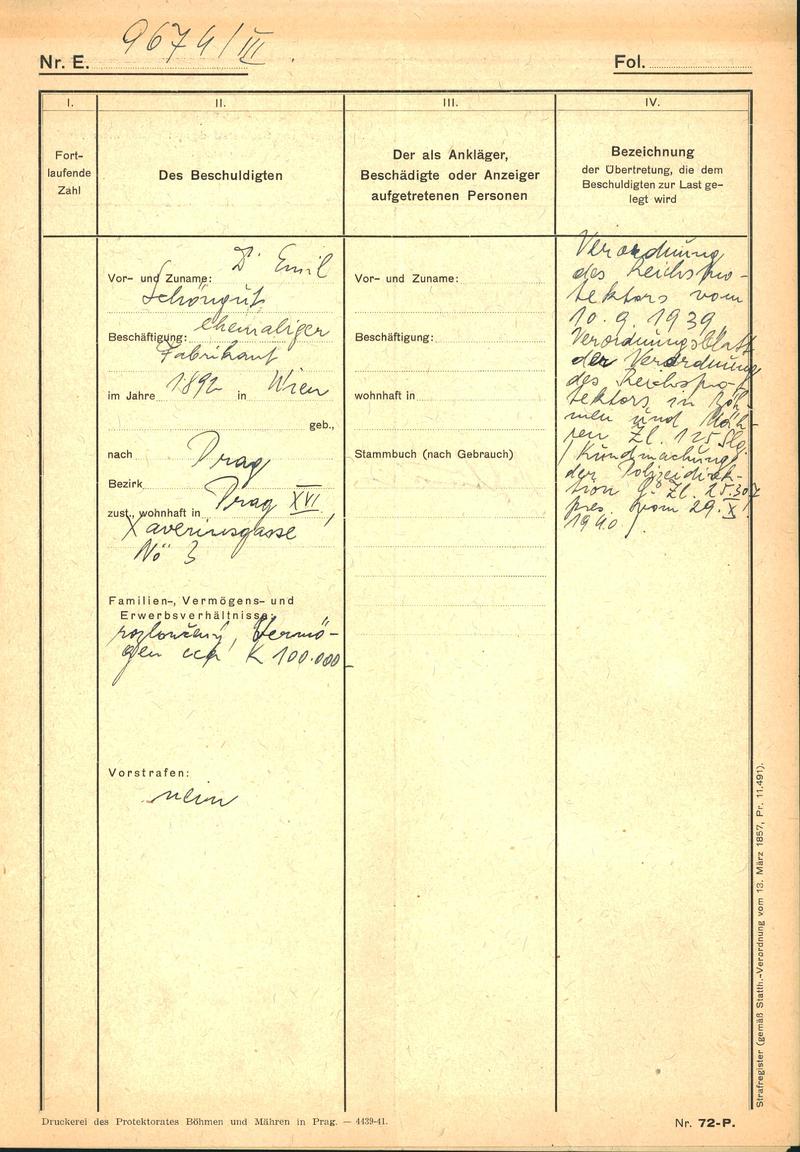 Nr. E. 9674/III
Fol.
I.
Fort-
laufende
Zahl
II.
Des Beschuldigten
III.
Der als Ankläger,
Beschädigte oder Anzeiger
aufgetretenen Personen
IV.
Bezeichnung
der Übertretung, die dem
Beschuldigten zur Last ge-
legt wird
Dr Emil
Vor- und Zuname:
Schöngut
Beschäftigung: ehemaliger
Fabrikant
im Jahre 1892 in Wien
geb.,
nach Prag
Bezirk
zust., wohnhaft in Prag XVI,
Xaveriusgasse
No 3
Familien-, Vermögens- und
Erwerbsverhältnisse:
rozloučený, Vermö-
gen cca K 100.000-
Vorstrafen:
nein
Vor- und Zuname:
Beschäftigung:
wohnhaft in
Stammbuch (nach Gebrauch)
Verordnung
des Reichspro-
tektors vom
10.9.1939
Verordnungsblatt
der Verordnung
des Reichspro-
tektors in Böh-
men und Mäh-
ren Zl. 125 Slg.
/Kundmachung
der Polizeidirek-
tion Zl. 25.307
pres. vom 29.X.
1940
Strafregister (gemäß Statth.-Verordnung vom 13. März 1857, Pr. 11.491).
Druckerei des Protektorates Böhmen und Mähren in Prag. — 4439-41.
Nr. 72-P.